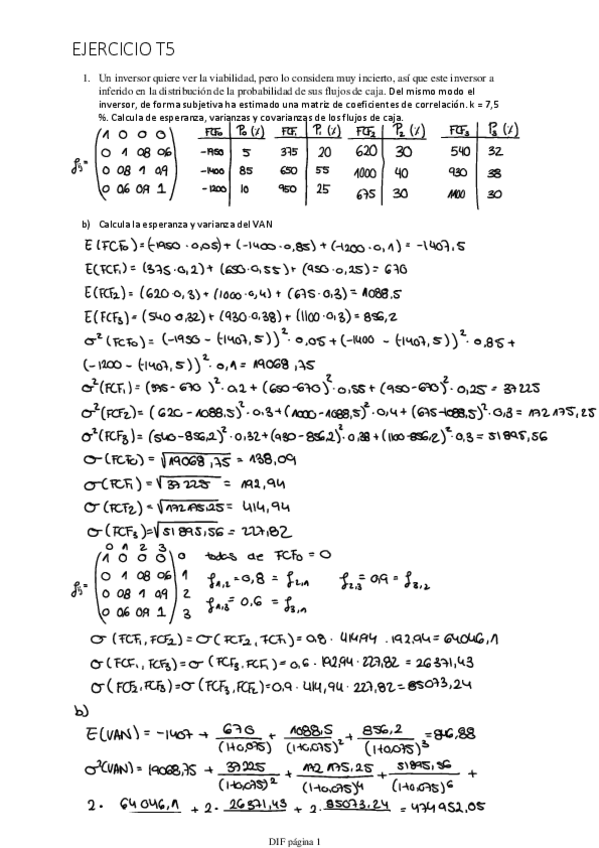 EJERCICIO T5
1. Un inversor quiere ver la viabilidad, pero lo considera muy incierto, así que este inversor a
inferido en la distribución de la probabilidad de sus flujos de caja. Del mismo modo el
inversor, de forma subjetiva ha estimado una matriz de coeficientes de correlación. k = 7,5
%. Calcula de esperanza, varianzas y covarianzas de los flujos de caja.
FCF₀ P₀ (%) FCF₁ P₁ (%) FCF₂ P₂ (%) FCF₃ P₃ (%)
1 0 0 0
0 1 0,8 0,6 -1950 5 375 20 620 30 540 32
0 0,8 1 0,9 -1400 85 650 55 1000 40 930 38
0 0,6 0,9 1 -1200 10 950 25 675 30 1100 30
b) Calcula la esperanza y varianza del VAN
E(FCF₀) = (-1950 · 0,05) + (-1400 · 0,85) + (-1200 · 0,1) = -1407,5
E(FCF₁) = (375 · 0,2) + (650 · 0,55) + (950 · 0,25) = 670
E(FCF₂) = (620 · 0,3) + (1000 · 0,4) + (675 · 0,3) = 1088,5
E(FCF₃) = (540 · 0,32) + (930 · 0,38) + (1100 · 0,3) = 856,2
σ²(FCF₀) = (-1950 - (-1407,5))² · 0,05 + (-1400 - (-1407,5))² · 0,85 +
(-1200 - (-1407,5))² · 0,1 = 19068,75
σ²(FCF₁) = (375 - 670)² · 0,2 + (650 - 670)² · 0,55 + (950 - 670)² · 0,25 = 37225
σ²(FCF₂) = (620 - 1088,5)² · 0,3 + (1000 - 1088,5)² · 0,4 + (675 - 1088,5)² · 0,3 = 172175,25
σ²(FCF₃) = (540 - 856,2)² · 0,32 + (930 - 856,2)² · 0,38 + (1100 - 856,2)² · 0,3 = 51895,56
σ(FCF₀) = √19068,75 = 138,09
σ(FCF₁) = √37225 = 192,94
σ(FCF₂) = √172175,25 = 414,94
σ(FCF₃) = √51895,56 = 227,82
0 1 2 3
1 0 0 0 0 todas de FCF₀ = 0
0 1 0,8 0,6 1 ρ₁,₂ = 0,8 = ρ₂,₁ ρ₂,₃ = 0,9 = ρ₃,₂
0 0,8 1 0,9 2
0 0,6 0,9 1 3 ρ₁,₃ = 0,6 = ρ₃,₁
σ(FCF₁, FCF₂) = σ(FCF₂, FCF₁) = 0,8 · 414,94 · 192,94 = 64046,1
σ(FCF₁, FCF₃) = σ(FCF₃, FCF₁) = 0,6 · 192,94 · 227,82 = 26371,43
σ(FCF₂, FCF₃) = σ(FCF₃, FCF₂) = 0,9 · 414,94 · 227,82 = 85073,24
b)
E(VAN) = -1407 + 670/(1+0,075) + 1088,5/(1+0,075)² + 856,2/(1+0,075)³ = 846,88
σ²(VAN) = 19068,75 + 37225/(1+0,075)² + 172175,25/(1+0,075)⁴ + 51895,56/(1+0,075)⁶ +
2 · 64046,1 + 2 · 26371,43 + 2 · 85073,24 = 474952,05
DIF página 1